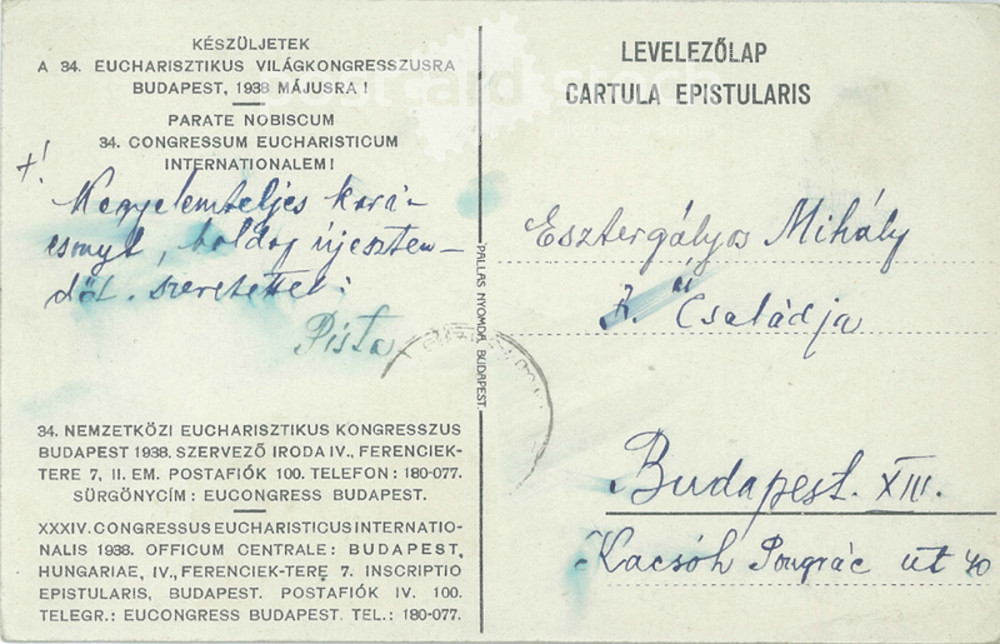 KÉSZÜLJETEK
A 34. EUCHARISZTIKUS VILÁGKONGRESSZUSRA
BUDAPEST, 1938 MÁJUSRA!
PARATE NOBISCUM
34. CONGRESSUM EUCHARISTICUM
INTERNATIONALEM!
+!
Kegyelemteljes kará-
csonyt, boldog újeszten-
dőt. szeretettel:
Pista
34. NEMZETKÖZI EUCHARISZTIKUS KONGRESSZUS
BUDAPEST 1938. SZERVEZŐ IRODA IV., FERENCIEK-
TERE 7, II. EM. POSTAFIÓK 100. TELEFON: 180-077.
SÜRGÖNYCÍM: EUCONGRESS BUDAPEST.
XXXIV. CONGRESSUS EUCHARISTICUS INTERNATIO-
NALIS 1938. OFFICUM CENTRALE: BUDAPEST,
HUNGARIAE, IV., FERENCIEK-TERE 7. INSCRIPTIO
EPISTULARIS, BUDAPEST. POSTAFIÓK IV. 100.
TELEGR.: EUCONGRESS BUDAPEST. TEL.: 180-077.
PALLAS NYOMDA, BUDAPEST.
LEVELEZŐLAP
CARTULA EPISTULARIS
postcard stock
Esztergályos Mihály
és Családja
Budapest. XIII.
Kacsóh Pongrác út 40